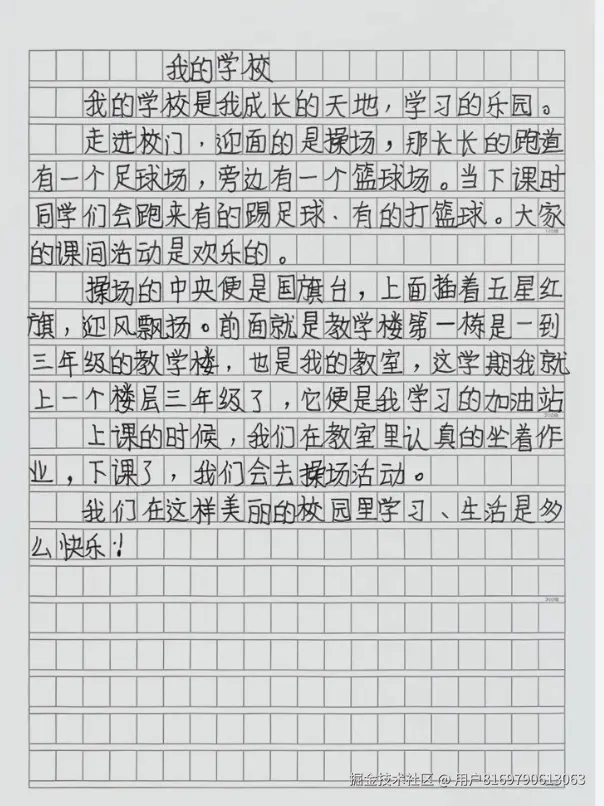 我的学校
我的学校是我成长的天地，学习的乐园。
走进校门，迎面的是操场，那长长的跑道
有一个足球场，旁边有一个篮球场。当下课时
同学们会跑来有的踢足球、有的打篮球。大家
的课间活动是欢乐的。
操场的中央便是国旗台，上面插着五星红
旗，迎风飘扬。前面就是教学楼第一栋是一到
三年级的教学楼，也是我的教室，这学期我就
上一个楼层三年级了，它便是我学习的加油站
上课的时候，我们在教室里认真的坐着作
业，下课了，我们会去操场活动。
我们在这样美丽的校园里学习、生活是多
么快乐！
掘金技术社区 @ 用户8169790613063